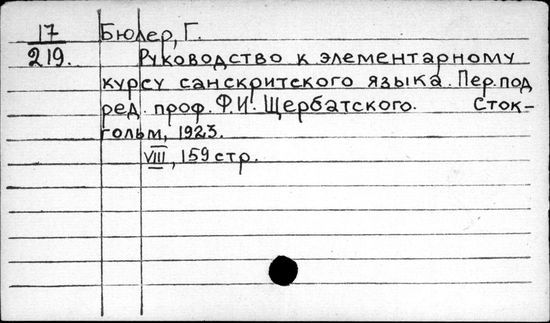 17 Бюлер, Г.
219. Руководство к элементарному
курсу санскритского языка. Пер. под
ред. проф. Ф.И. Щербатского. Сток-
гольм, 1923.
VIII, 159 стр.